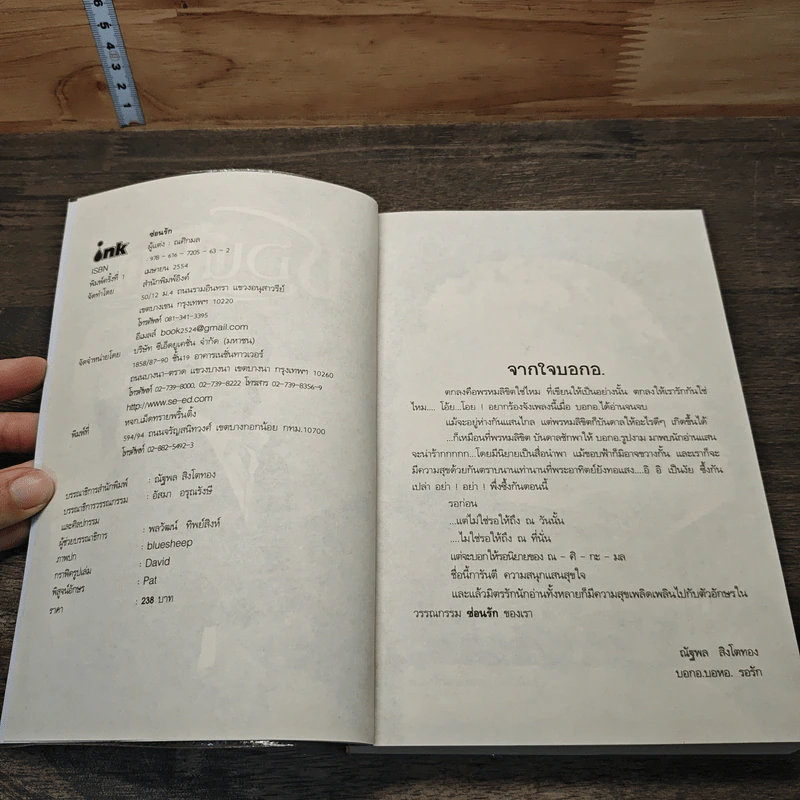 6 5 4 3 2 1
ซ่อนรัก
ink
ผู้แต่ง : ณศิกมล
ISBN : 978 - 616 - 7205 - 63 - 2
พิมพ์ครั้งที่ 1 เมษายน 2554
จัดทำโดย สำนักพิมพ์อิงค์
50/12 ม.4 ถนนรามอินทรา แขวงอนุสาวรีย์
เขตบางเขน กรุงเทพฯ 10220
โทรศัพท์ 081-341-3395
อีเมลล์ book2524@gmail.com
จัดจำหน่ายโดย บริษัท ซีเอ็ดยูเคชัน จำกัด (มหาชน)
1858/87-90 ชั้น19 อาคารเนชั่นทาวเวอร์
ถนนบางนา-ตราด แขวงบางนา เขตบางนา กรุงเทพฯ 10260
โทรศัพท์ 02-739-8000, 02-739-8222 โทรสาร 02-739-8356-9
http://www.se-ed.com
พิมพ์ที่ หจก.เม็ดทรายพริ้นติ้ง
594/94 ถนนจรัญสนิทวงศ์ เขตบางกอกน้อย กทม.10700
โทรศัพท์ 02-882-5492-3
บรรณาธิการสำนักพิมพ์ : ณัฐพล สิงโตทอง
บรรณาธิการวรรณกรรม : อัสมา อรุณรังษี
และศิลปกรรม
ผู้ช่วยบรรณาธิการ : พลวัฒน์ ทิพย์สิงห์
ภาพปก : bluesheep
กราฟิครูปเล่ม : David
พิสูจน์อักษร : Pat
ราคา : 238 บาท
จากใจบอกอ.
ตกลงคือพรหมลิขิตใช่ไหม ที่เขียนให้เป็นอย่างนั้น ตกลงให้เรารักกันใช่
ไหม.... โอ้ย...โอย ! อยากร้องจังเพลงนี้เมื่อ บอกอ.ได้อ่านจนจบ
แม้จะอยู่ห่างกันแสนไกล แต่พรหมลิขิตก็บันดาลให้อะไรดีๆ เกิดขึ้นได้
...ก็เหมือนที่พรหมลิขิต บันดาลชักพาให้ บอกอ.รูปงาม มาพบนักอ่านแสน
จะน่าร้ากกกกก...โดยมีนิยายเป็นสื่อนำพา แม้ขอบฟ้าก็มิอาจขวางกั้น และเราก็จะ
มีความสุขด้วยกันตราบนานเท่านานที่พระอาทิตย์ยังทอแสง....อิ อิ เป็นงัย ซึ้งกัน
เปล่า อย่า ! อย่า ! พึ่งซึ้งกันตอนนี้
รอก่อน
...แต่ไม่ใช่รอให้ถึง ณ วันนั้น
....ไม่ใช่รอให้ถึง ณ ที่นั่น
แต่จะบอกให้รอนิยายของ ณ - ศิ - กะ - มล
ชื่อนี้การันตี ความสนุกแสนสุขใจ
และแล้วมิตรรักนักอ่านทั้งหลายก็มีความสุขเพลิดเพลินไปกับตัวอักษรใน
วรรณกรรม ซ่อนรัก ของเรา
ณัฐพล สิงโตทอง
บอกอ.บอหอ. รอรัก